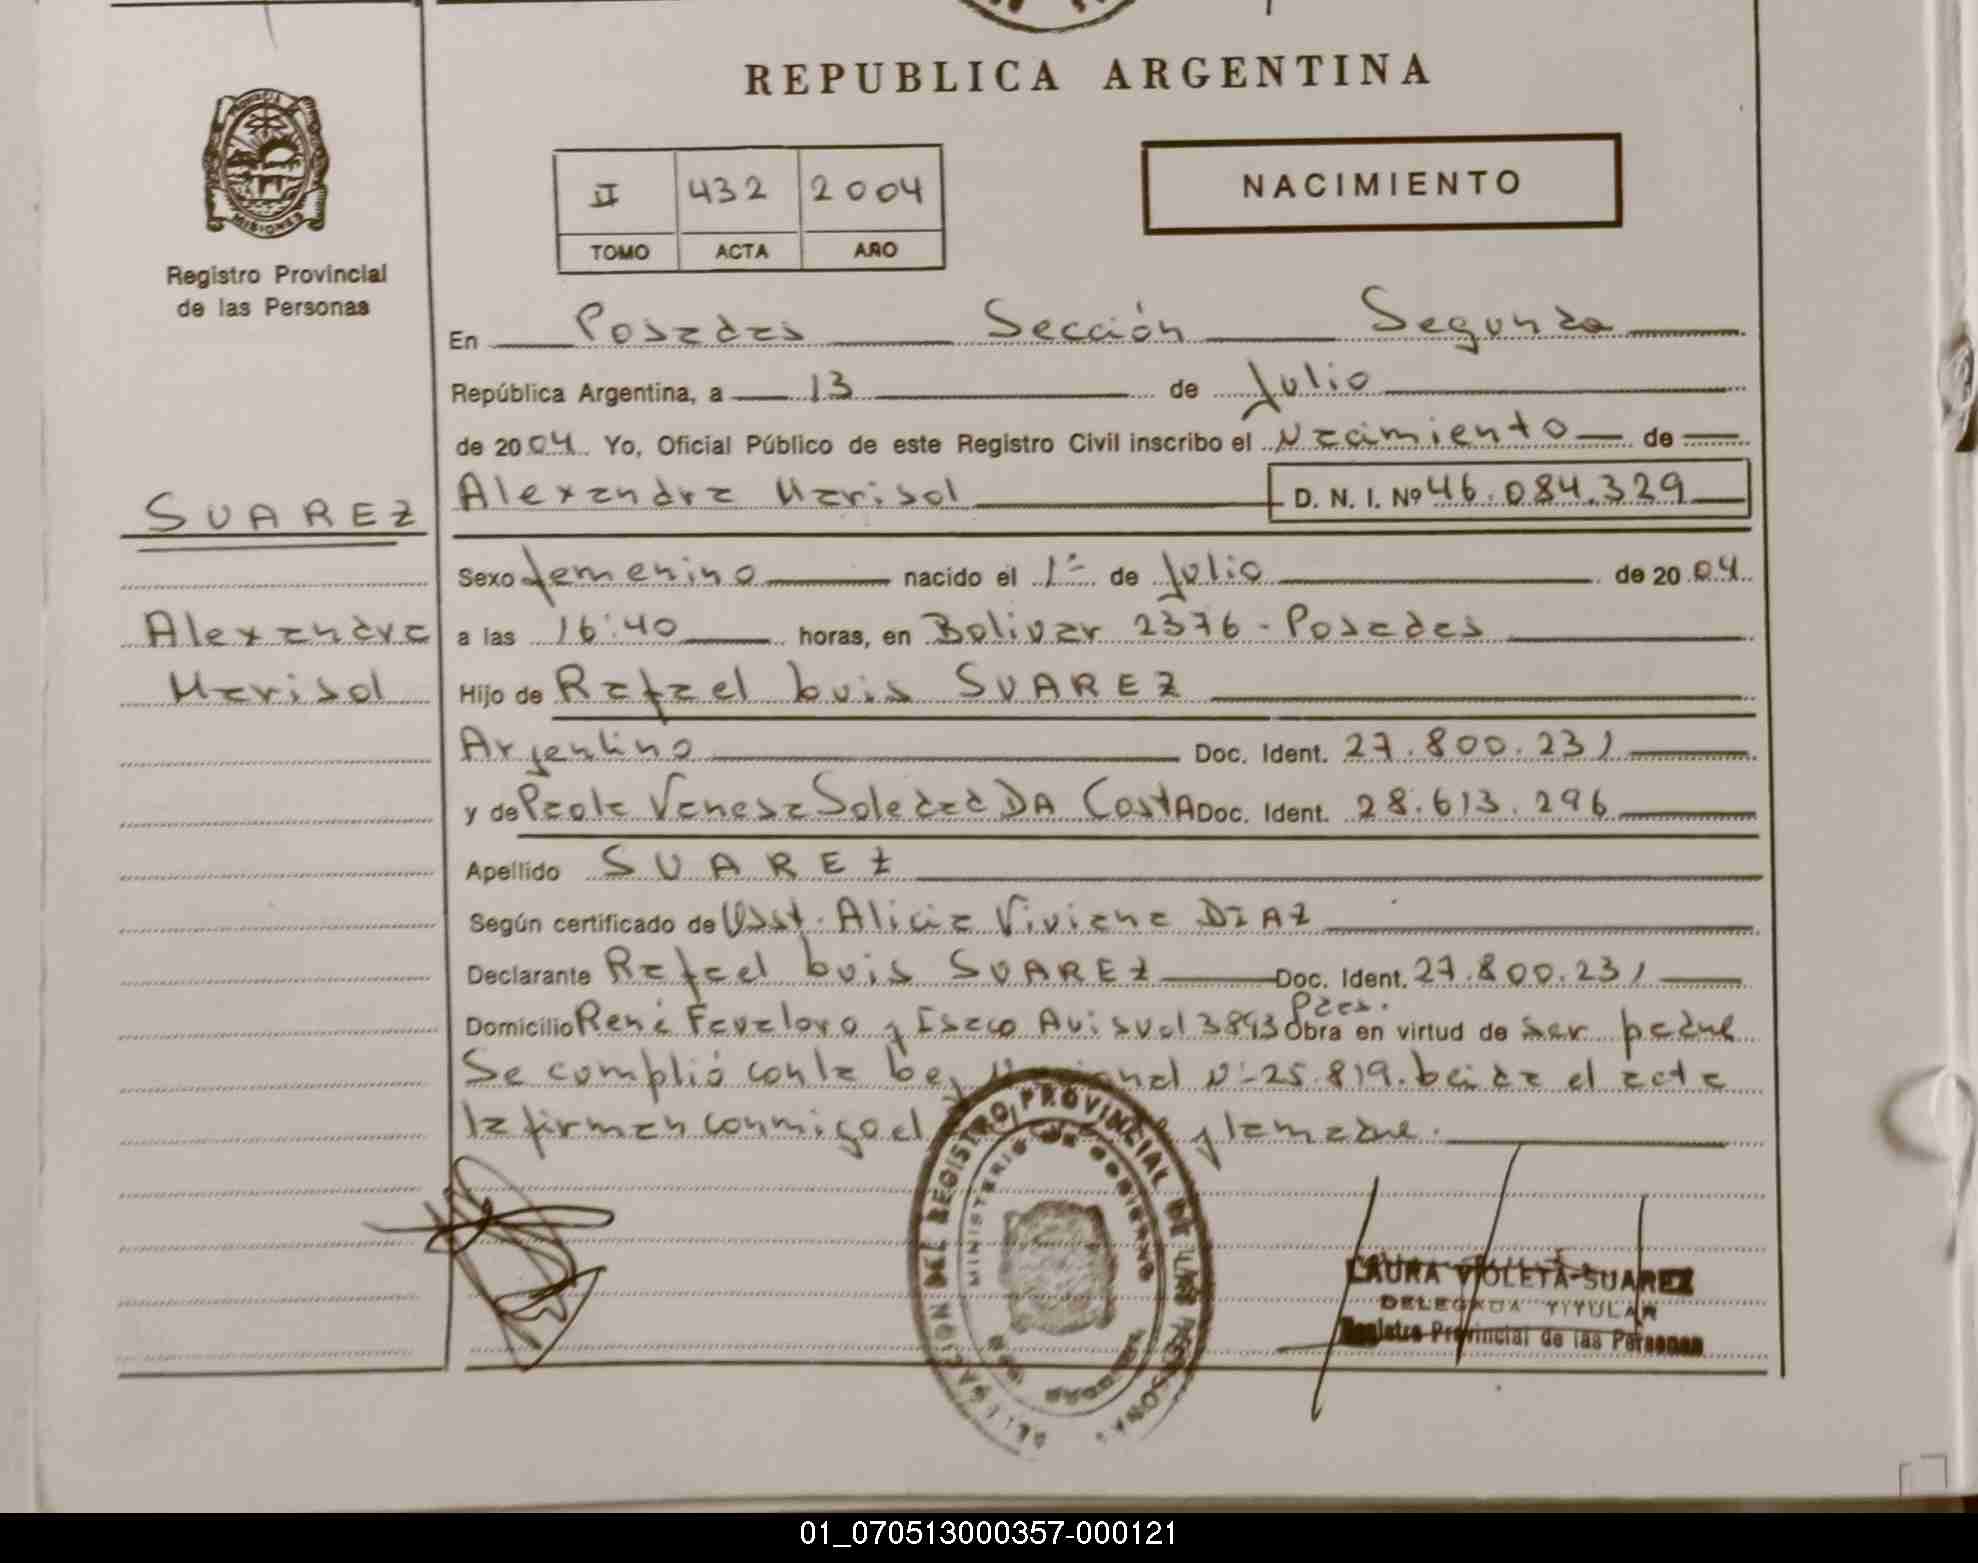 REPUBLICA ARGENTINA
PROVINCIA DE
MISIONES
Registro Provincial
de las Personas
II 432 2004
TOMO ACTA AÑO
NACIMIENTO
En Posadas Sección Segunda
República Argentina, a 13 de Julio
de 2004. Yo, Oficial Público de este Registro Civil inscribo el Nacimiento de
SUAREZ
Alexandra Marisol D. N. I. Nº 46.084.329
Sexo femenino nacido el 1º de Julio de 2004
Alexandra
a las 16:40 horas, en Bolivar 2376 - Posadas
Marisol
Hijo de Rafael Luis SUAREZ
Argentino Doc. Ident. 27.800.231
y de Paola Vanesa Soledad DA CostA Doc. Ident. 28.613.296
Apellido SUAREZ
Según certificado de Obst. Alicia Viviana DIAZ
Declarante Rafael Luis SUAREZ Doc. Ident. 27.800.231
Domicilio René Favaloro y Isaco 3893 Pdas. Obra en virtud de ser padre
Se cumplió con la Ley Nacional Nº 25.819. Leida el acta
la firman conmigo el y la madre.
DELEGACION DEL REGISTRO PROVINCIAL DE LAS PERSONAS
MINISTERIO DE GOBIERNO
LAURA VIOLETA SUAREZ
DELEGADA TITULAR
Registro Provincial de las Personas
01_070513000357-000121